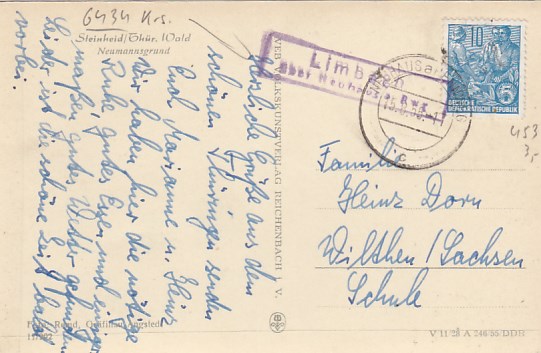 6434 Krs.
Steinheid/Thür. Wald
Neumannsgrund
Herzliche Grüße aus dem
schönen Thüringen senden
Euch Marianne u. Heinz
Wir haben hier die nötige
Ruhe, gutes Essen und einiger-
maßen gutes Wetter gefunden.
Leider ist die schöne Zeit bald
vorbei.
VEB VOLKSKUNSTVERLAG REICHENBACH i. V.
Limb
über Neuhaus a. Rwg.
10
5
DEUTSCHE
DEMOKRATISCHE REPUBLIK
453
3,-
Familie
Heinz Dorn
Wilthen/Sachsen
Schule
V 11/28 A 246/55 DDR